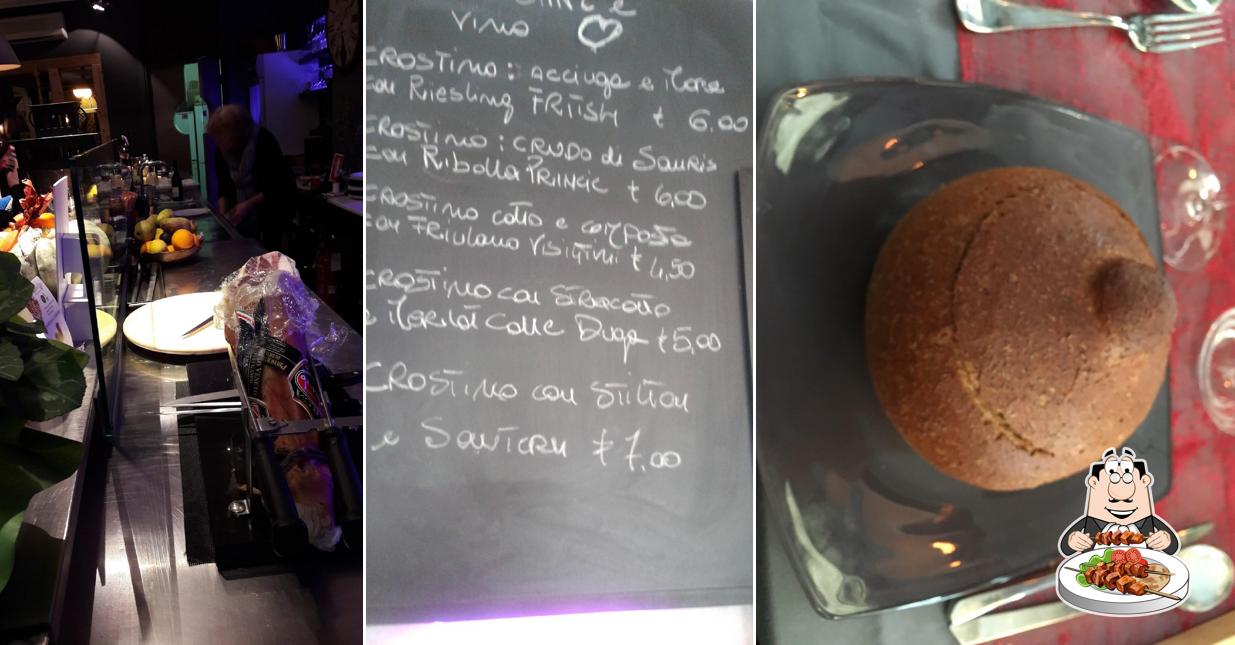 e
vino
CROSTINO: acciuga e
con Riesling FRITSH € 6.00
CROSTINO: CRUDO di Sauris
con Ribolla PRINCIC € 6,00
CROSTINO cotto e composta
con FRIULANO VISINTINI € 4,50
CROSTINO con STRACOTTO
e Merlot Colle Duga € 5,00
CROSTINO con Stilton
e SAUTERN € 7.00